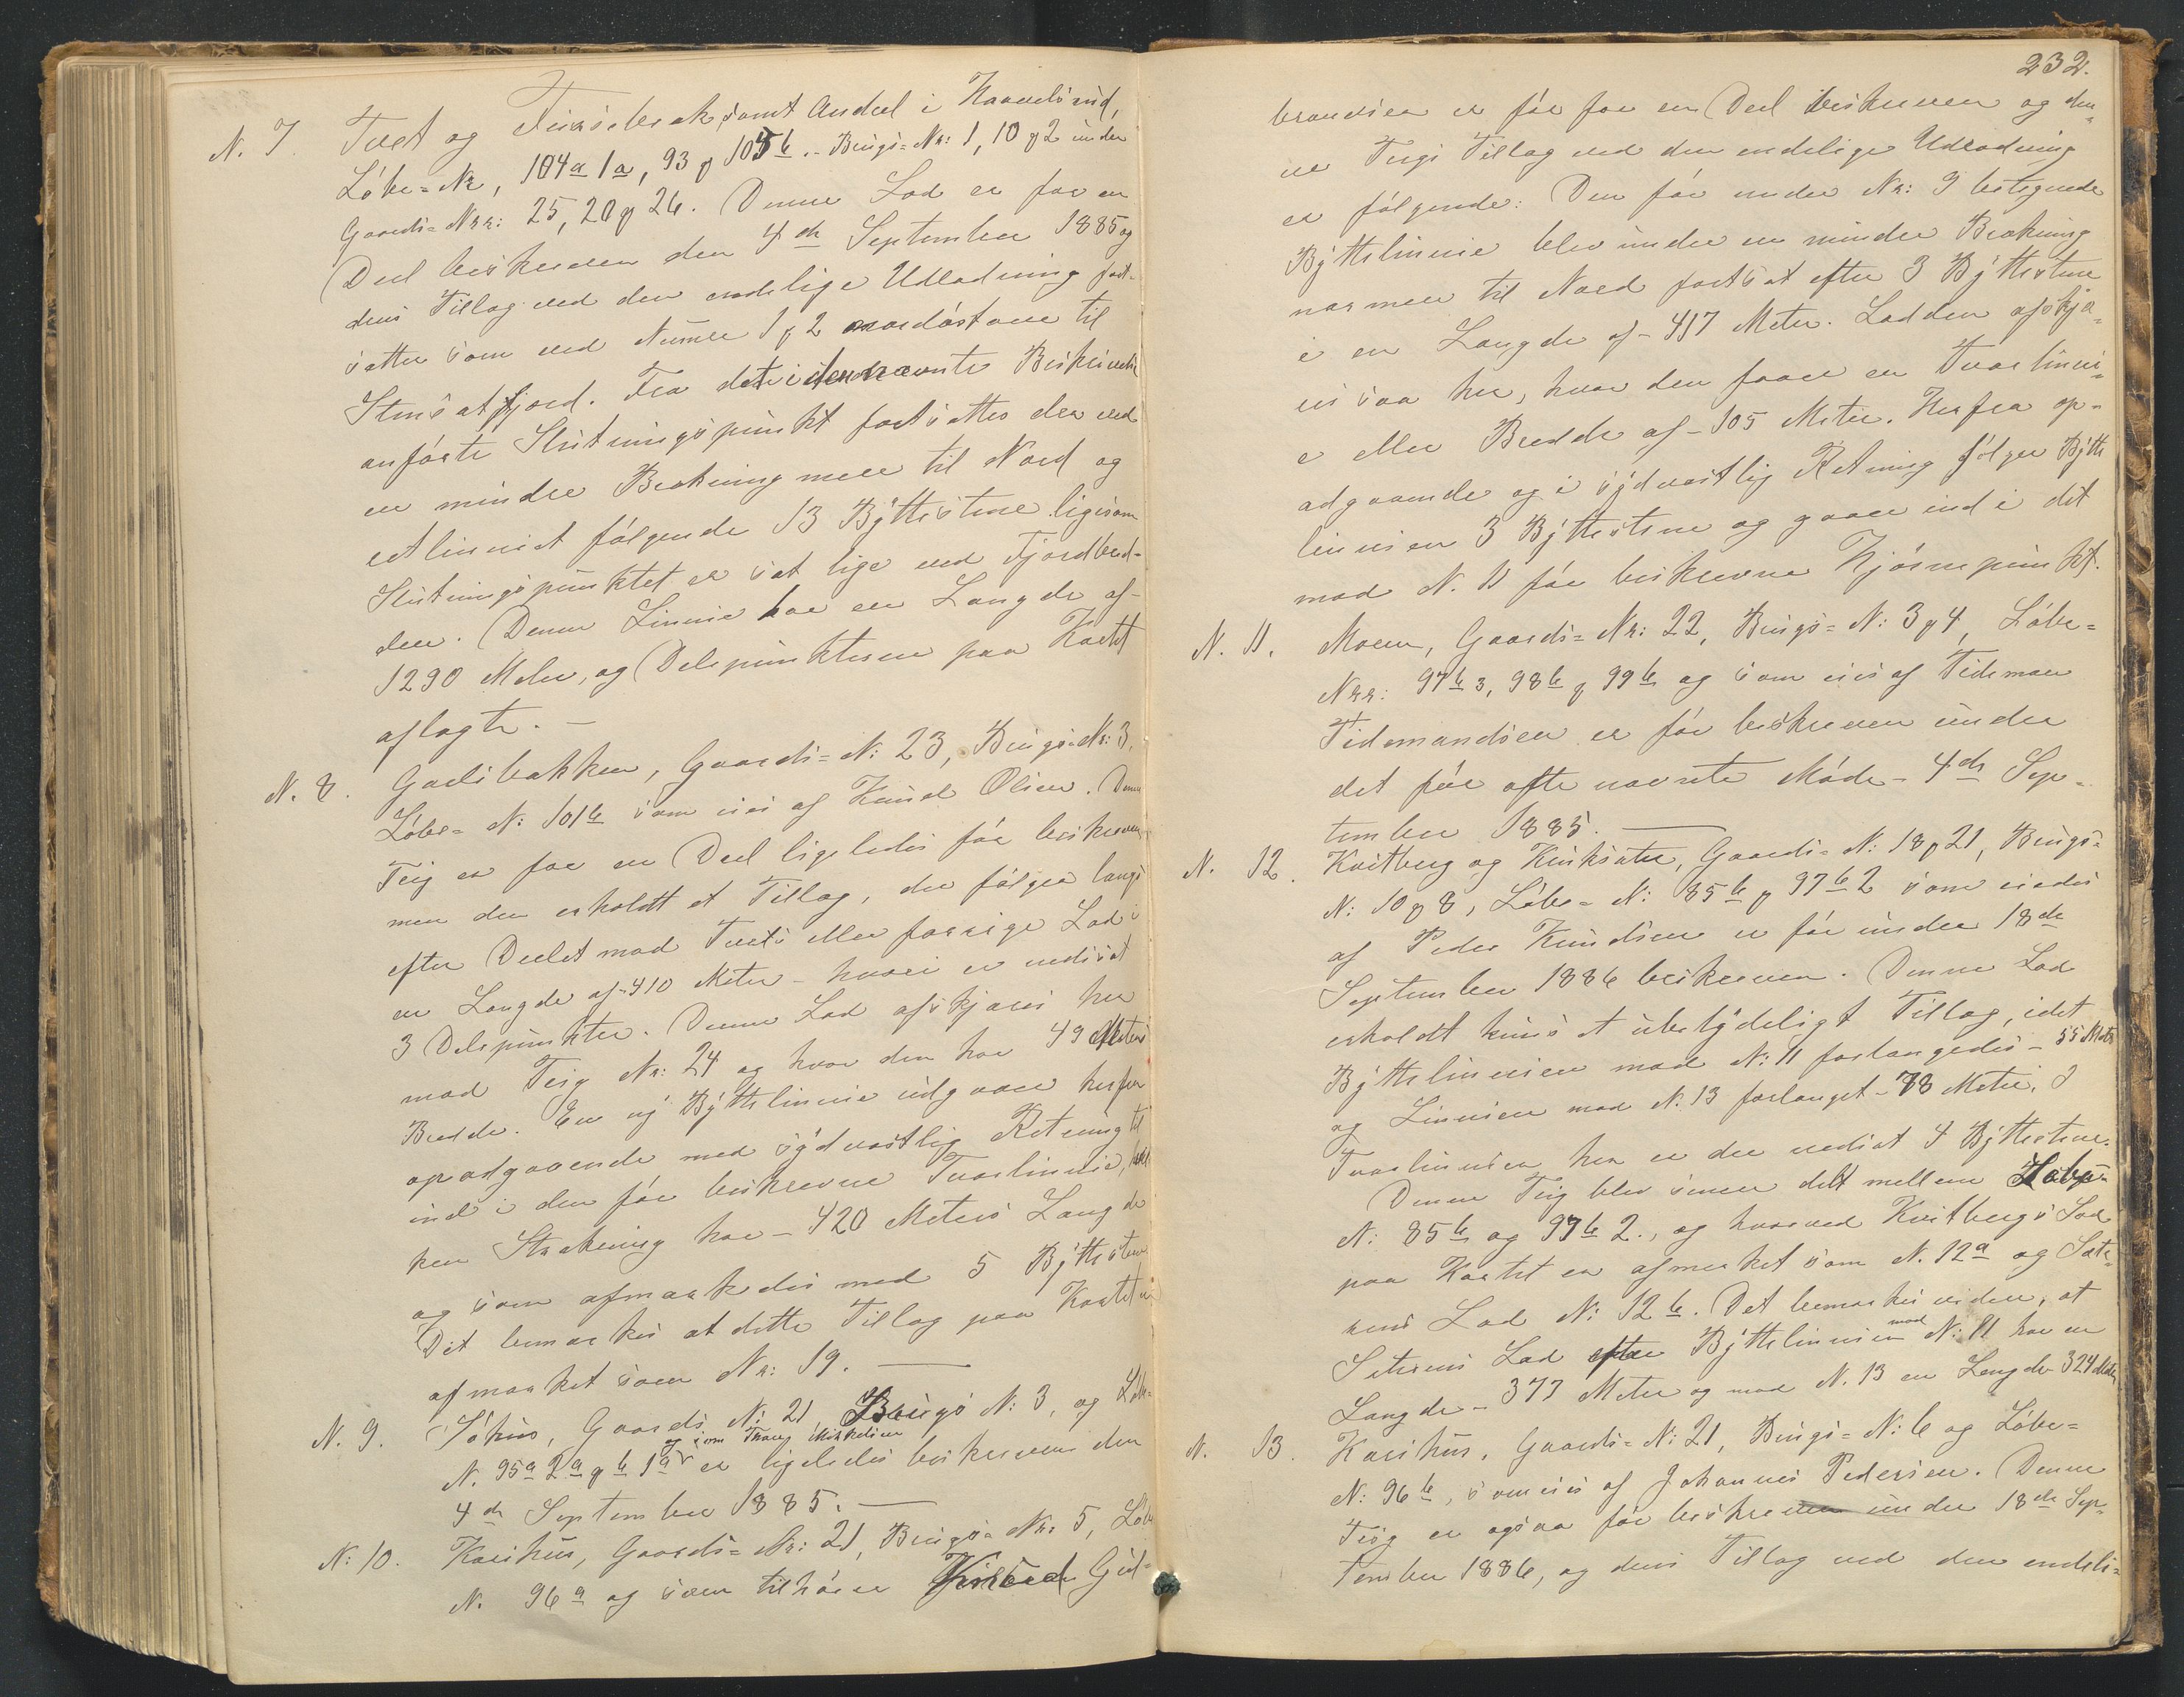 N. 7. Tvet og Teisebæk samt Andeel i Haavelsrud,
Løbe=Nr, 104a 1a, 93 og 105b.- Brugs=Nr: 1, 10 og 2 under
Gaards=Nrr: 25, 20 og 26. Denne Lod er for en
Deel beskreven den 4de September 1885 og
dens Tillæg ved den endelige Udlodning fort-
sættes som ved Numer 1 og 2 nordostover til
Stensatfjord. Fra det i den nævnte Beskrivelse
anførte Slutningspunkt fortsættes der ved
en mindre Brækning mere til Nord og
retlinniet følgende 13 Bÿttestene ligesom
Slutningspunktet er sat lige ved Fjordbred-
den. Denne Linnie har en Længde af-
1290 Meter, og Delepunkterne paa Kartet
aflagte. —
N. 8. Godsbakken, Gaards=N: 23, Brugs=Nr: 3,
Løbe=N: 101b som eies af Knud Olsen. Denne
Teig er for en Deel ligeledes før beskreven
men den erholdt et Tillæg, der følger langs
efter Deelet mod Tvets eller forrige Lod i
en Længde af-410 Meter - hvori er nedsat
3 Delepunkter. Denne Lod afskjæres her
mod Teig Nr: 24 og hvor den har 49 Meters
Bredde. En nÿ Bÿttelinnie udgaaer herfra
opadgaaende med sÿdvestlig Retning til
ind i den før beskrevne Tværlinnie, hvil-
ken Strækning har - 420 Meters Længde
og som afmærkedes med 5 Bÿttestene
Det bemærkes at dette Tillæg paa Kartet er
afmærket som Nr: 19. —
N. 9. Søhus, Gaards N: 21, Brugs N: 3, og Løbe-
N. 95a 2a og b 1a og som Mikkelsen er ligeledes beskreven den
4de September 1885. —
N: 10. Karihus, Gaards=Nr: 21, Brugs= Nr: 5, Løbe
N. 96a og som tilhører Gud=
232.
brandsen er før for en Deel beskreven og den-
ne Teigs Tillæg ved den endelige Udlodning
er følgende: Den før under Nr: 9 betegnede
Bÿttelinnie blev under en mindre Brækning
nærmere til Nord fortsat efter 3 Bÿttestene
i en Længde af - 417 Meter. Lodden afskjæ-
res saa her, hvor den faaer en Tværlinni-
e eller Bredde af - 105 Meter. Herfra op-
adgaaende og i sÿdvestlig Retning følger Bÿtte
linnien 3 Bÿttestene og gaaer ind i det
mod N. 11 før beskrevne Hjørnepunkt.
N. 11. Moen, Gaards=Nr: 22, Brugs=N: 3 og 4, Løbe=
Nrr: 97b 3, 98b og 99b og som eies af Tideman
Tidemandsen er før beskreven under
det før ofte nævnte Møde - 4de Sep-
tember 1885. —
N. 12. Kvitberg og Kinksæter, Gaards=N: 18 og 21, Brugs=
N: 10 og 8, Løbe=N: 85b og 97b 2 som eiedes
af Peder Knudsen er før under 18de
September 1886 beskreven. Denne Lod
erholdt kuns et ubetÿdeligt Tillæg, idet
Bÿttelinnien mod N: 11 forlængedes - 55 Meter
og Linnien mod N. 13 forlænget - 78 Meter. I
Tværlinnien her er der nedsat 4 Bÿttestene.
Denne Teig blev senere delt mellem Løbe=
N: 85b og 97b 2., og hvorved Kvitbergs Lod
paa Kartet er afmerket som N. 12a og Sæte-
rens Lod N: 12b. Det bemærkes videre, at
Seterens Lod efter Bÿttelinnien mod N: 11 har en
Længde - 377 Meter og mod N. 13 en Længde 324 Meter
N. 13. Karihus, Gaards=N: 21, Brugs=N: 6 og Løbe=
N: 96b, som eies af Johannes Pedersen. Denne
Teig er ogsaa før beskreven under 18de Sep-
tember 1886, og dens Tillæg ved den endeli=